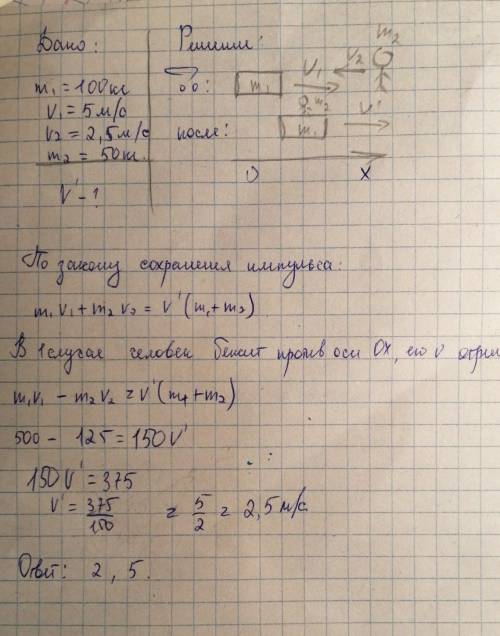 Дано: Решение:
m₁ = 100 кг
V₁ = 5 м/с
V₂ = 2,5 м/с
m₂ = 50 кг.
V' - ?
до: m₁ V₁ V₂ m₂
после: m₁ m₂ V'
0 X
По закону сохранения импульса:
m₁V₁ + m₂V₂ = V'(m₁+m₂)
В 1 случае человек бежит против оси OX, его v отриц
m₁V₁ - m₂V₂ = V'(m₁+m₂)
500 - 125 = 150V'
150V' = 375
V' = 375/150 = 5/2 = 2,5 м/с.
Ответ: 2,5.